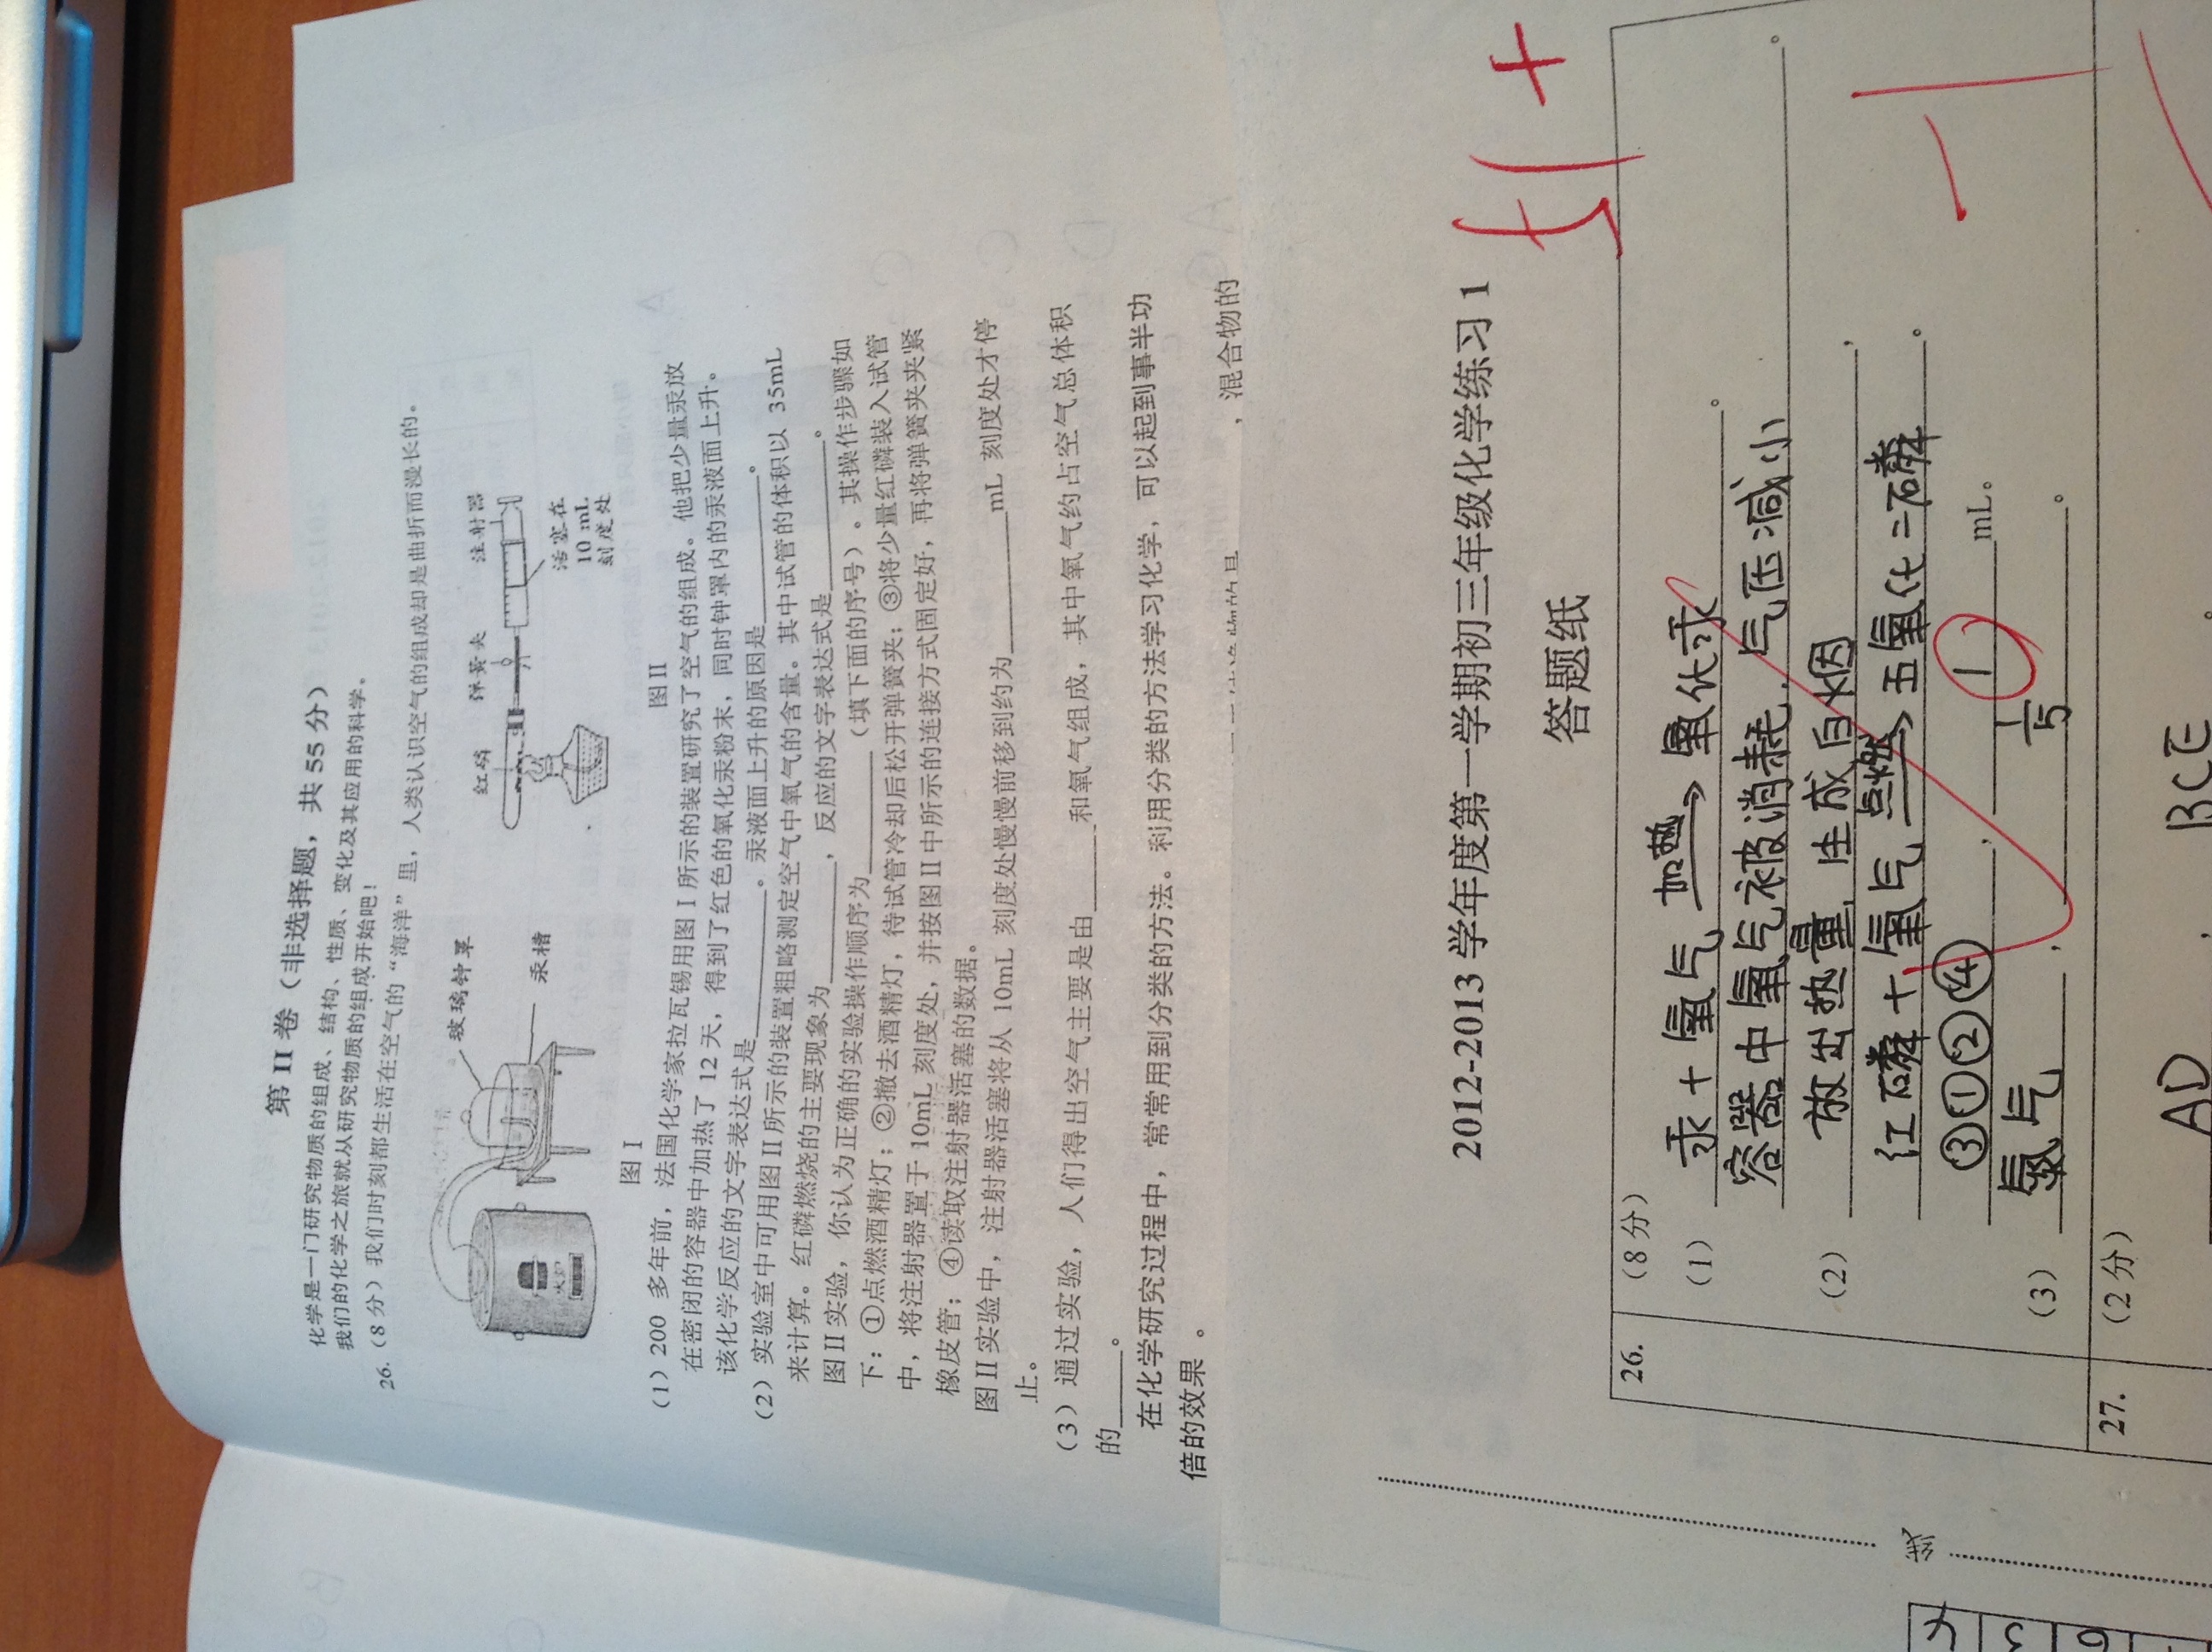 第 II 卷（非选择题，共 55 分）
化学是一门研究物质的组成、结构、性质、变化及其应用的科学。
我们的化学之旅就从研究物质的组成开始吧！
26.（8 分）我们时刻都生活在空气的“海洋”里，人类认识空气的组成却是曲折而漫长的。
玻璃钟罩
汞槽
火炉
图 I
红磷 弹簧夹 注射器
活塞在
10 mL
刻度处
图 II
（1）200 多年前，法国化学家拉瓦锡用图 I 所示的装置研究了空气的组成。他把少量汞放
在密闭的容器中加热了 12 天，得到了红色的氧化汞粉末，同时钟罩内的汞液面上升。
该化学反应的文字表达式是________。汞液面上升的原因是________。
（2）实验室中可用图 II 所示的装置粗略测定空气中氧气的含量。其中试管的体积以 35mL
来计算。红磷燃烧的主要现象为________，反应的文字表达式是________。
图 II 实验，你认为正确的实验操作顺序为________（填下面的序号）。其操作步骤如
下：①点燃酒精灯；②撤去酒精灯，待试管冷却后松开弹簧夹；③将少量红磷装入试管
中，将注射器置于 10mL 刻度处，并按图 II 中所示的连接方式固定好，再将弹簧夹夹紧
橡皮管；④读取注射器活塞的数据。
图 II 实验中，注射器活塞将从 10mL 刻度处慢慢前移到约为________mL 刻度处才停
止。
（3）通过实验，人们得出空气主要是由_____和氧气组成，其中氧气约占空气总体积
的_____。
在化学研究过程中，常常用到分类的方法。利用分类的方法学习化学，可以起到事半功
倍的效果 。
，混合物的
2012-2013 学年度第一学期初三年级化学练习 1
51+
答题纸
26. （8 分）
（1） 汞 + 氧气 加热→ 氧化汞 。
容器中氧气被消耗，气压减小 。
（2） 放出热量，生成白烟 ，
红磷 + 氧气 点燃→ 五氧化二磷 。
③①②④ ， 1 mL。
-1
（3） 氮气 ， 1/5 。
27. （2 分）
AD ， BCE 。
线